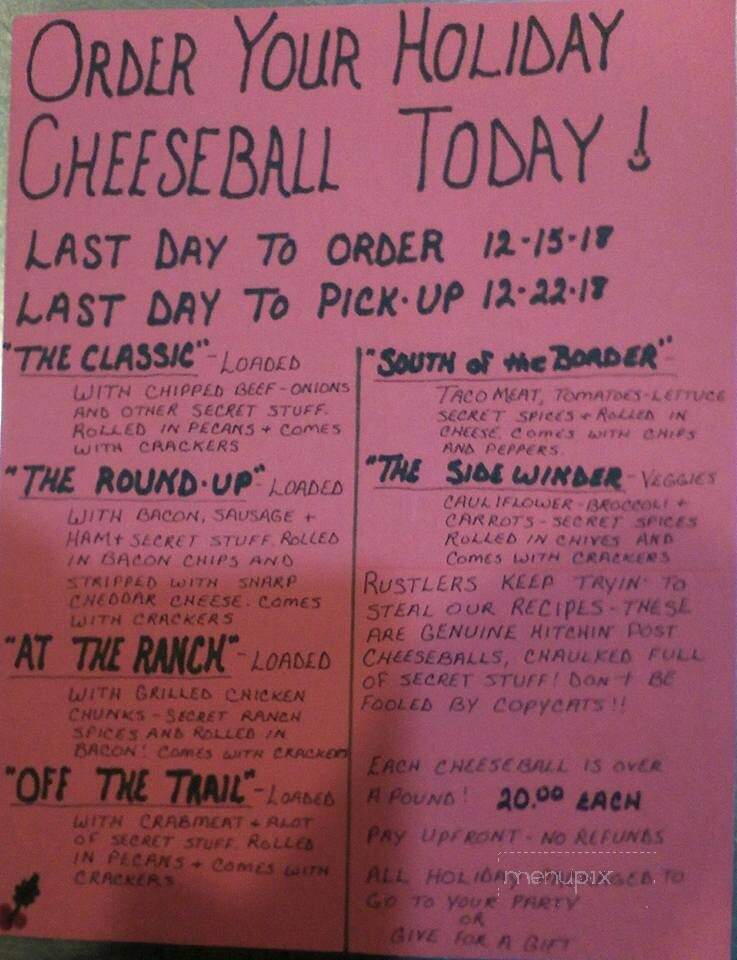 ORDER YOUR HOLIDAY
CHEESEBALL TODAY!
LAST DAY TO ORDER 12-15-18
LAST DAY TO PICK-UP 12-22-18
"THE CLASSIC" - LOADED
WITH CHIPPED BEEF - ONIONS
AND OTHER SECRET STUFF.
ROLLED IN PECANS + COMES
WITH CRACKERS
"THE ROUND-UP" - LOADED
WITH BACON, SAUSAGE +
HAM + SECRET STUFF. ROLLED
IN BACON CHIPS AND
STRIPPED WITH SHARP
CHEDDAR CHEESE. COMES
WITH CRACKERS
"AT THE RANCH" - LOADED
WITH GRILLED CHICKEN
CHUNKS - SECRET RANCH
SPICES AND ROLLED IN
BACON! COMES WITH CRACKERS
"OFF THE TRAIL" - LOADED
WITH CRABMEAT + ALOT
OF SECRET STUFF. ROLLED
IN PECANS + COMES WITH
CRACKERS
"SOUTH of the BORDER" -
TACO MEAT, TOMATOES - LETTUCE
SECRET SPICES + ROLLED IN
CHEESE. COMES WITH CHIPS
AND PEPPERS.
"THE SIDE WINDER - VEGGIES
CAULIFLOWER - BROCCOLI +
CARROTS - SECRET SPICES
ROLLED IN CHIVES AND
COMES WITH CRACKERS
RUSTLERS KEEP TRYIN' TO
STEAL OUR RECIPES - THESE
ARE GENUINE HITCHIN' POST
CHEESEBALLS, CHAULKED FULL
OF SECRET STUFF! DON'T BE
FOOLED BY COPYCATS!!
EACH CHEESEBALL IS OVER
A POUND! 20.00 EACH
PAY UPFRONT - NO REFUNDS
ALL HOLIDAY TO
menupix
GO TO YOUR PARTY
OR
GIVE FOR A GIFT